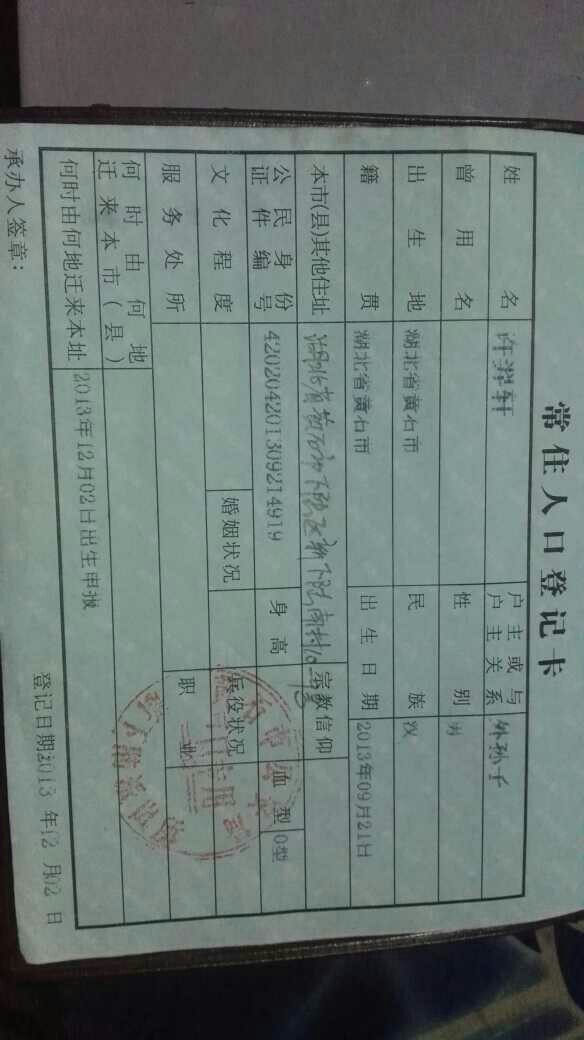 常住人口登记卡
姓名 许羿轩 户主或与户主关系 外孙子
曾用名 性别 男
出生地 湖北省黄石市 民族 汉
籍贯 湖北省黄石市 出生日期 2013年09月21日
本市(县)其他住址 湖北省黄石市下陆区新下陆南村10 宗教信仰
公民身份证件编号 420204201309214919 身高 血型 O型
文化程度 婚姻状况 兵役状况
服务处所 职业
何时由何地迁来本市(县)
何时由何地迁来本址 2013年12月02日出生申报
承办人签章: 登记日期2013年12月02日